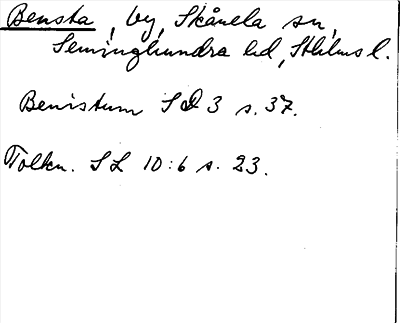 Bensta, by, Skånela sn,
Seminghundra hd, Sthlms l.
Benistum SD 3 s. 37.
Tolkn. SL 10:6 s. 23.